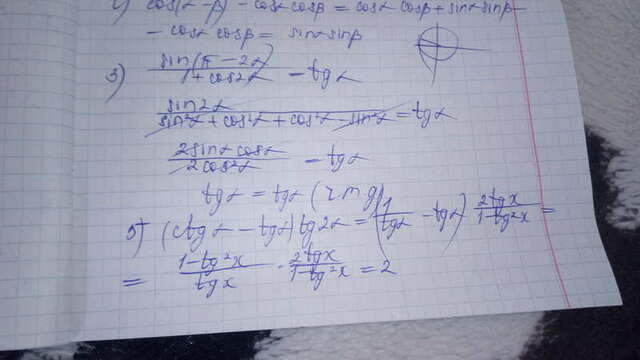 1) cos(α-β) - cosα cosβ = cosα cosβ + sinα sinβ -
- cosα cosβ = sinα sinβ
3) sin(π-2α) / 1+cos2α = tgα
sin2α / sin²α + cos²α + cos²α - sin²α = tgα
2sinα cosα / 2cos²α = tgα
tgα = tgα (ч.т.д)
5) (ctgα - tgα) tg2α = (1/tgα - tgα) 2tgx / 1-tg²x =
= 1-tg²x / tgx · 2tgx / 1-tg²x = 2